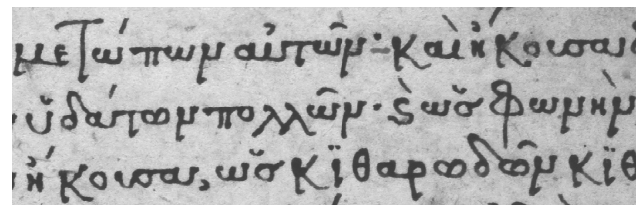 μετώπων αὐτῶν· καὶ ἤκουσα
ὑδάτων πολλῶν· ϗ ὡς φωνὴν
ἤκουσα, ὡς κϊθαρωδῶν κϊθ